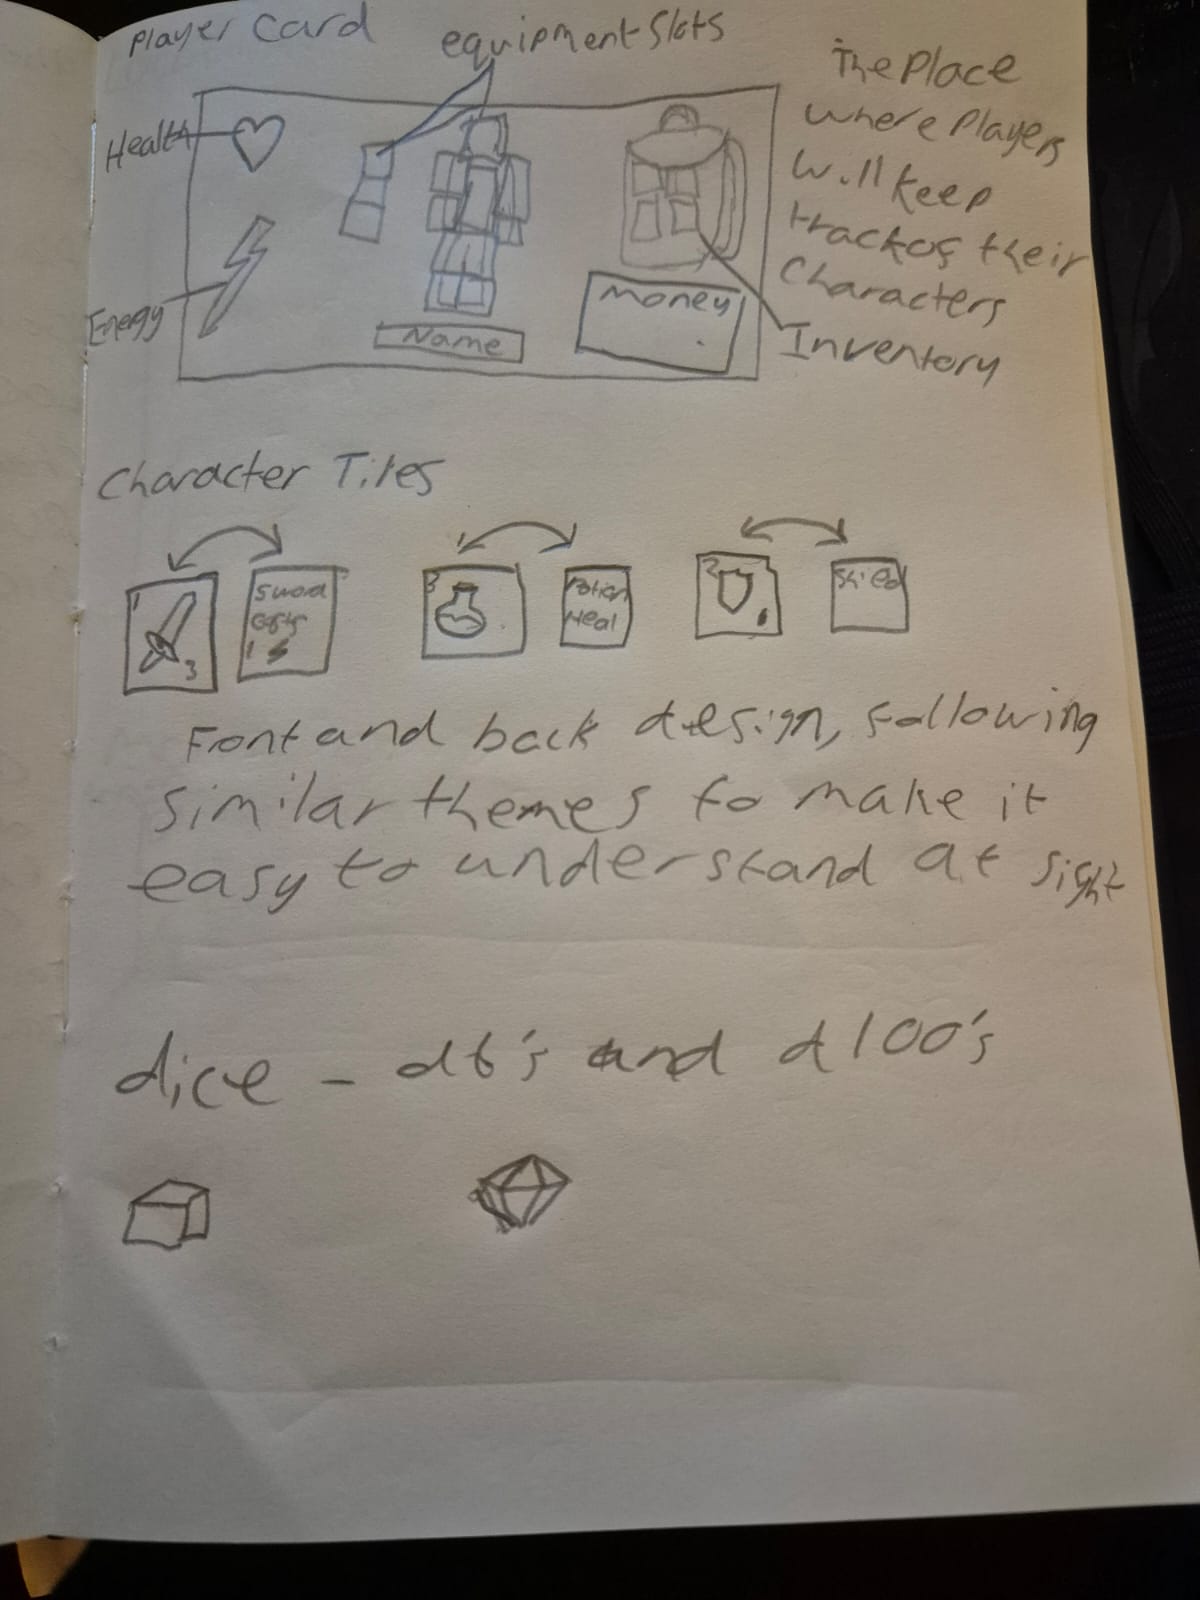 Player Card
equipment slots
The Place
where Players
will keep
track of their
Characters
Inventory
Health
Energy
Name
Money
Character Tiles
1
3
Sword
Costs
1
3
Potion
Heal
2
Front and back design, following
similar themes to make it
easy to understand at sight
dice - d6's and d100's